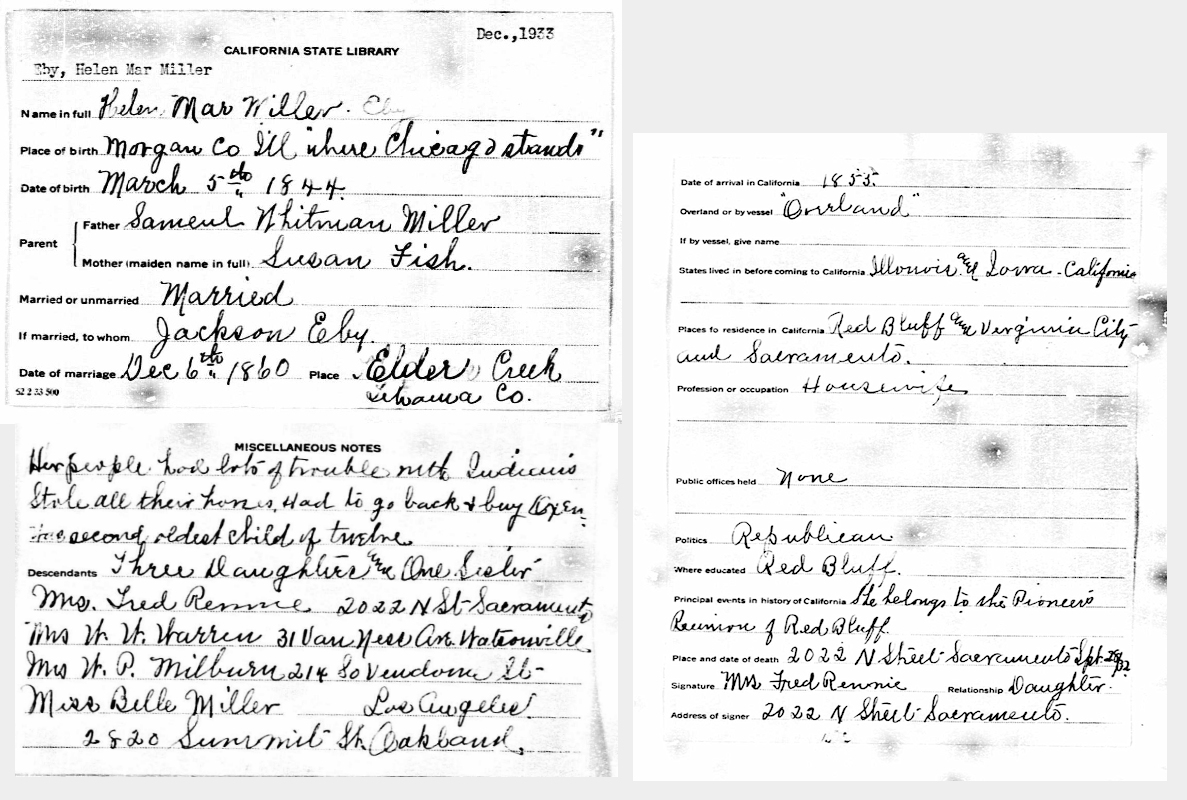 Dec.,1933
CALIFORNIA STATE LIBRARY
Eby, Helen Mar Miller
Name in full Helen Mar Miller. Eby
Place of birth Morgan Co Ill "where Chicago stands"
Date of birth March 5th 1844.
Parent
Father Sameul Whitman Miller
Mother (maiden name in full) Susan Fish.
Married or unmarried Married
If married, to whom Jackson Eby.
Date of marriage Dec 6th 1860 Place Elder Creek
52 2 33 500 Tehama Co.
MISCELLANEOUS NOTES
Her people had lots of trouble with Indians
Stole all their horses, Had to go back & buy Oxen.
second oldest child of twelve
Descendants Three Daughters and One Sister
Mrs. Fred Rennie 2022 N St Sacramento
Mrs W. W. Warren 31 Van Ness Ave Watsonville
Mrs W. P. Milburn 214 So Vendome St
Miss Belle Miller Los Angeles.
2820 Summit St. Oakland,
Date of arrival in California 1855.
Overland or by vessel "Overland"
If by vessel, give name
States lived in before coming to California Illinois and Iowa - California
Places fo residence in California Red Bluff and Verginia City
and Sacramento.
Profession or occupation Housewife
Public offices held None
Politics Republican
Where educated Red Bluff.
Principal events in history of California She belongs to the Pioneers
Reunion of Red Bluff.
Place and date of death 2022 N Street Sacramento Spt
Signature Mrs Fred Rennie Relationship Daughter.
Address of signer 2022 N Street Sacramento.